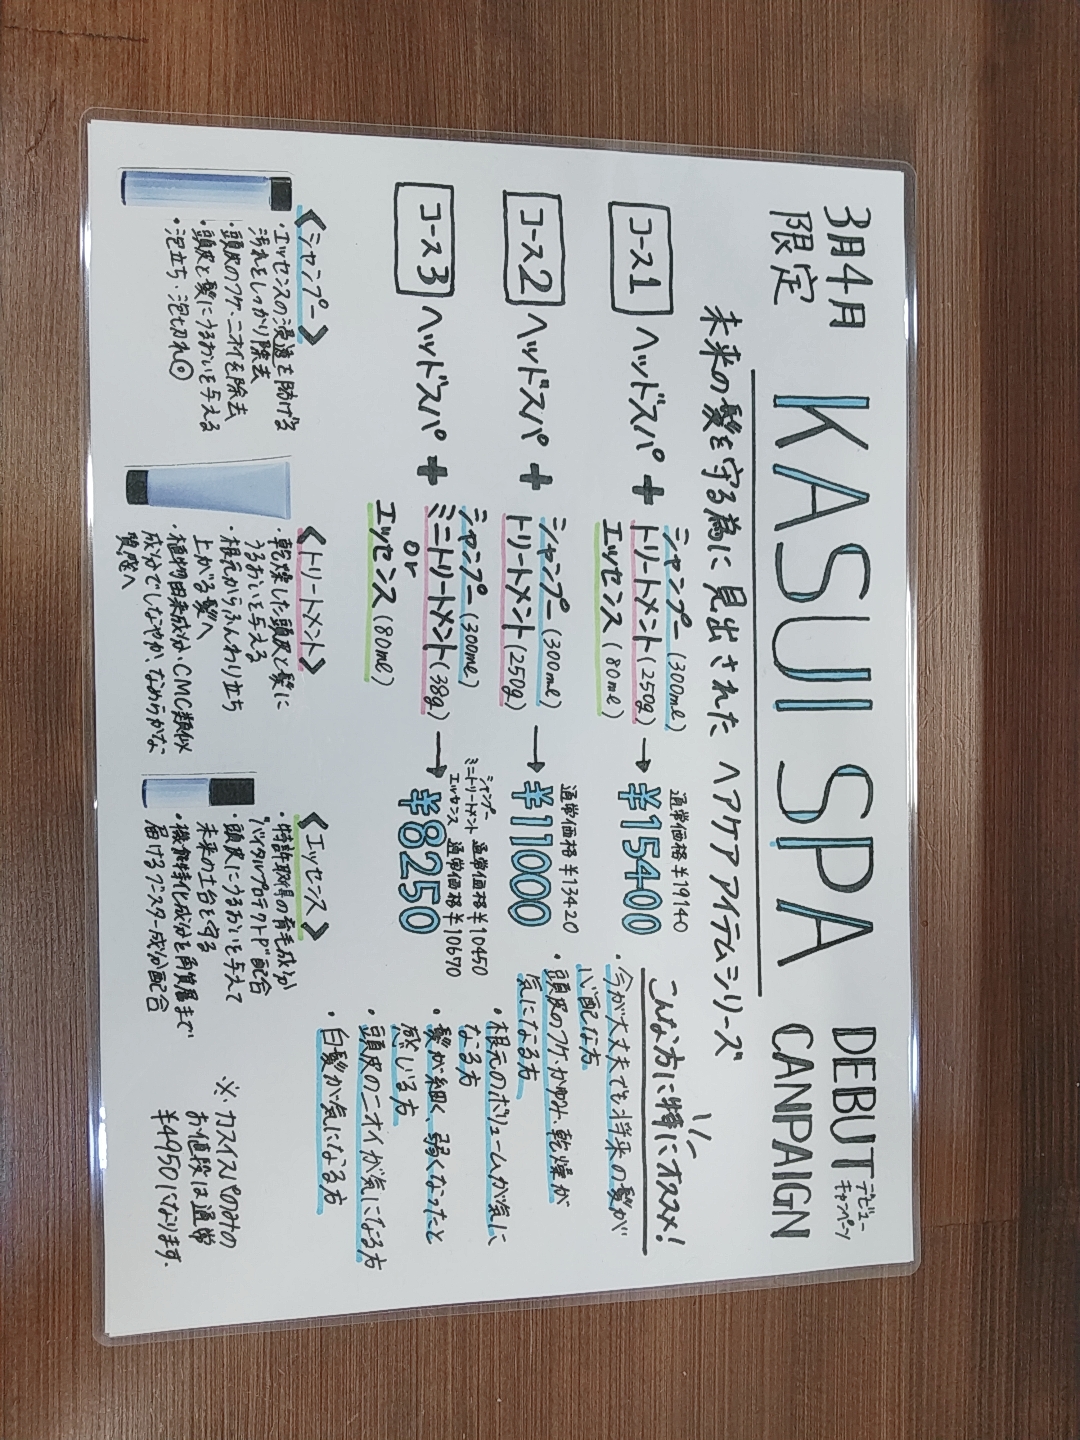 3月4月
限定
KASUI SPA
DEBUT デビュー
CANPAIGN キャンペーン
未来の髪を守る為に見出された ヘアケアアイテムシリーズ
コース1 ヘッドスパ +
シャンプー(300ml)
トリートメント(250g)
エッセンス(80ml)
→
通常価格 ¥19140
¥15400
コース2 ヘッドスパ +
シャンプー(300ml)
トリートメント(250g)
→
通常価格 ¥13420
¥11000
コース3 ヘッドスパ +
シャンプー(300ml)
ミニトリートメント(38g)
or
エッセンス(80ml)
→
シャンプー
ミニトリートメント 通常価格 ¥10450
エッセンス 通常価格 ¥10670
¥8250
こんな方に特にオススメ!
・今が大丈夫でも将来の髪が
心配な方
・頭皮のフケ・かゆみ・乾燥が
気になる方
・根元のボリュームが気に
なる方
・髪が細く、弱くなったと
感じる方
・頭皮のニオイが気になる方
・白髪が気になる方
《シャンプー》
・エッセンスの浸透を助ける
汚れをしっかり除去
・頭皮のフケ・ニオイを除去
・頭皮と髪にうるおいを与える
・泡立ち・泡切れ◎
《トリートメント》
・乾燥した頭皮と髪に
うるおいを与える
・根元からふんわり立ち
上がる髪へ
・植物由来成分・CMC類似
成分でしなやか、なめらかな
質感へ
《エッセンス》
・特許取得の育毛成分
"バイタルプロテクトP"配合
・頭皮にうるおいを与えて
未来の土台を守る
・機能特化成分を角質層まで
届けるブースター成分配合
※カスイスパのみの
お値段は通常
¥4950になります。